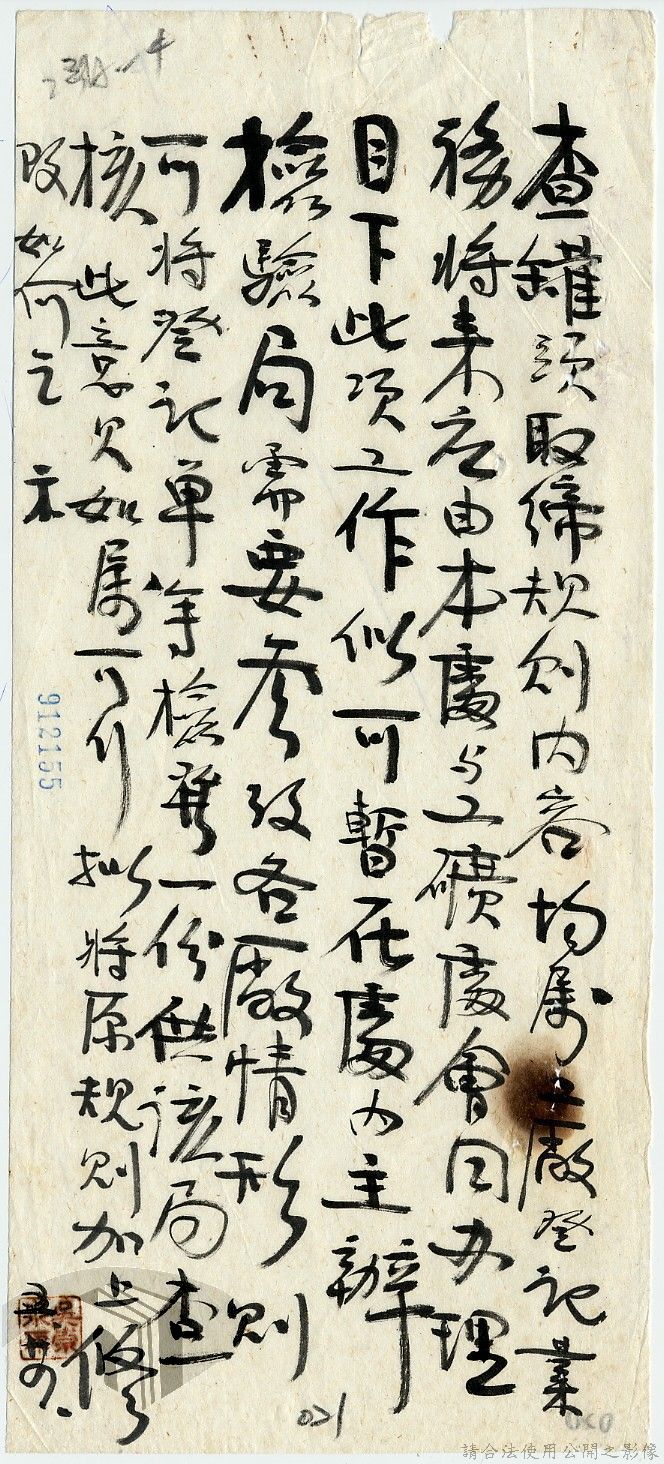 查罐頭取締規則內容均屬工廠登記業
務將来应由本處与工礦處會同办理
目下此項工作似可暫在處內主辦
檢驗局需要參攷各廠情形則
可将登記单等檢発一份供該局查
核 此意見如屬可行 拟将原規則加上修
改如何乞示
912155
021
請合法使用公開之影像